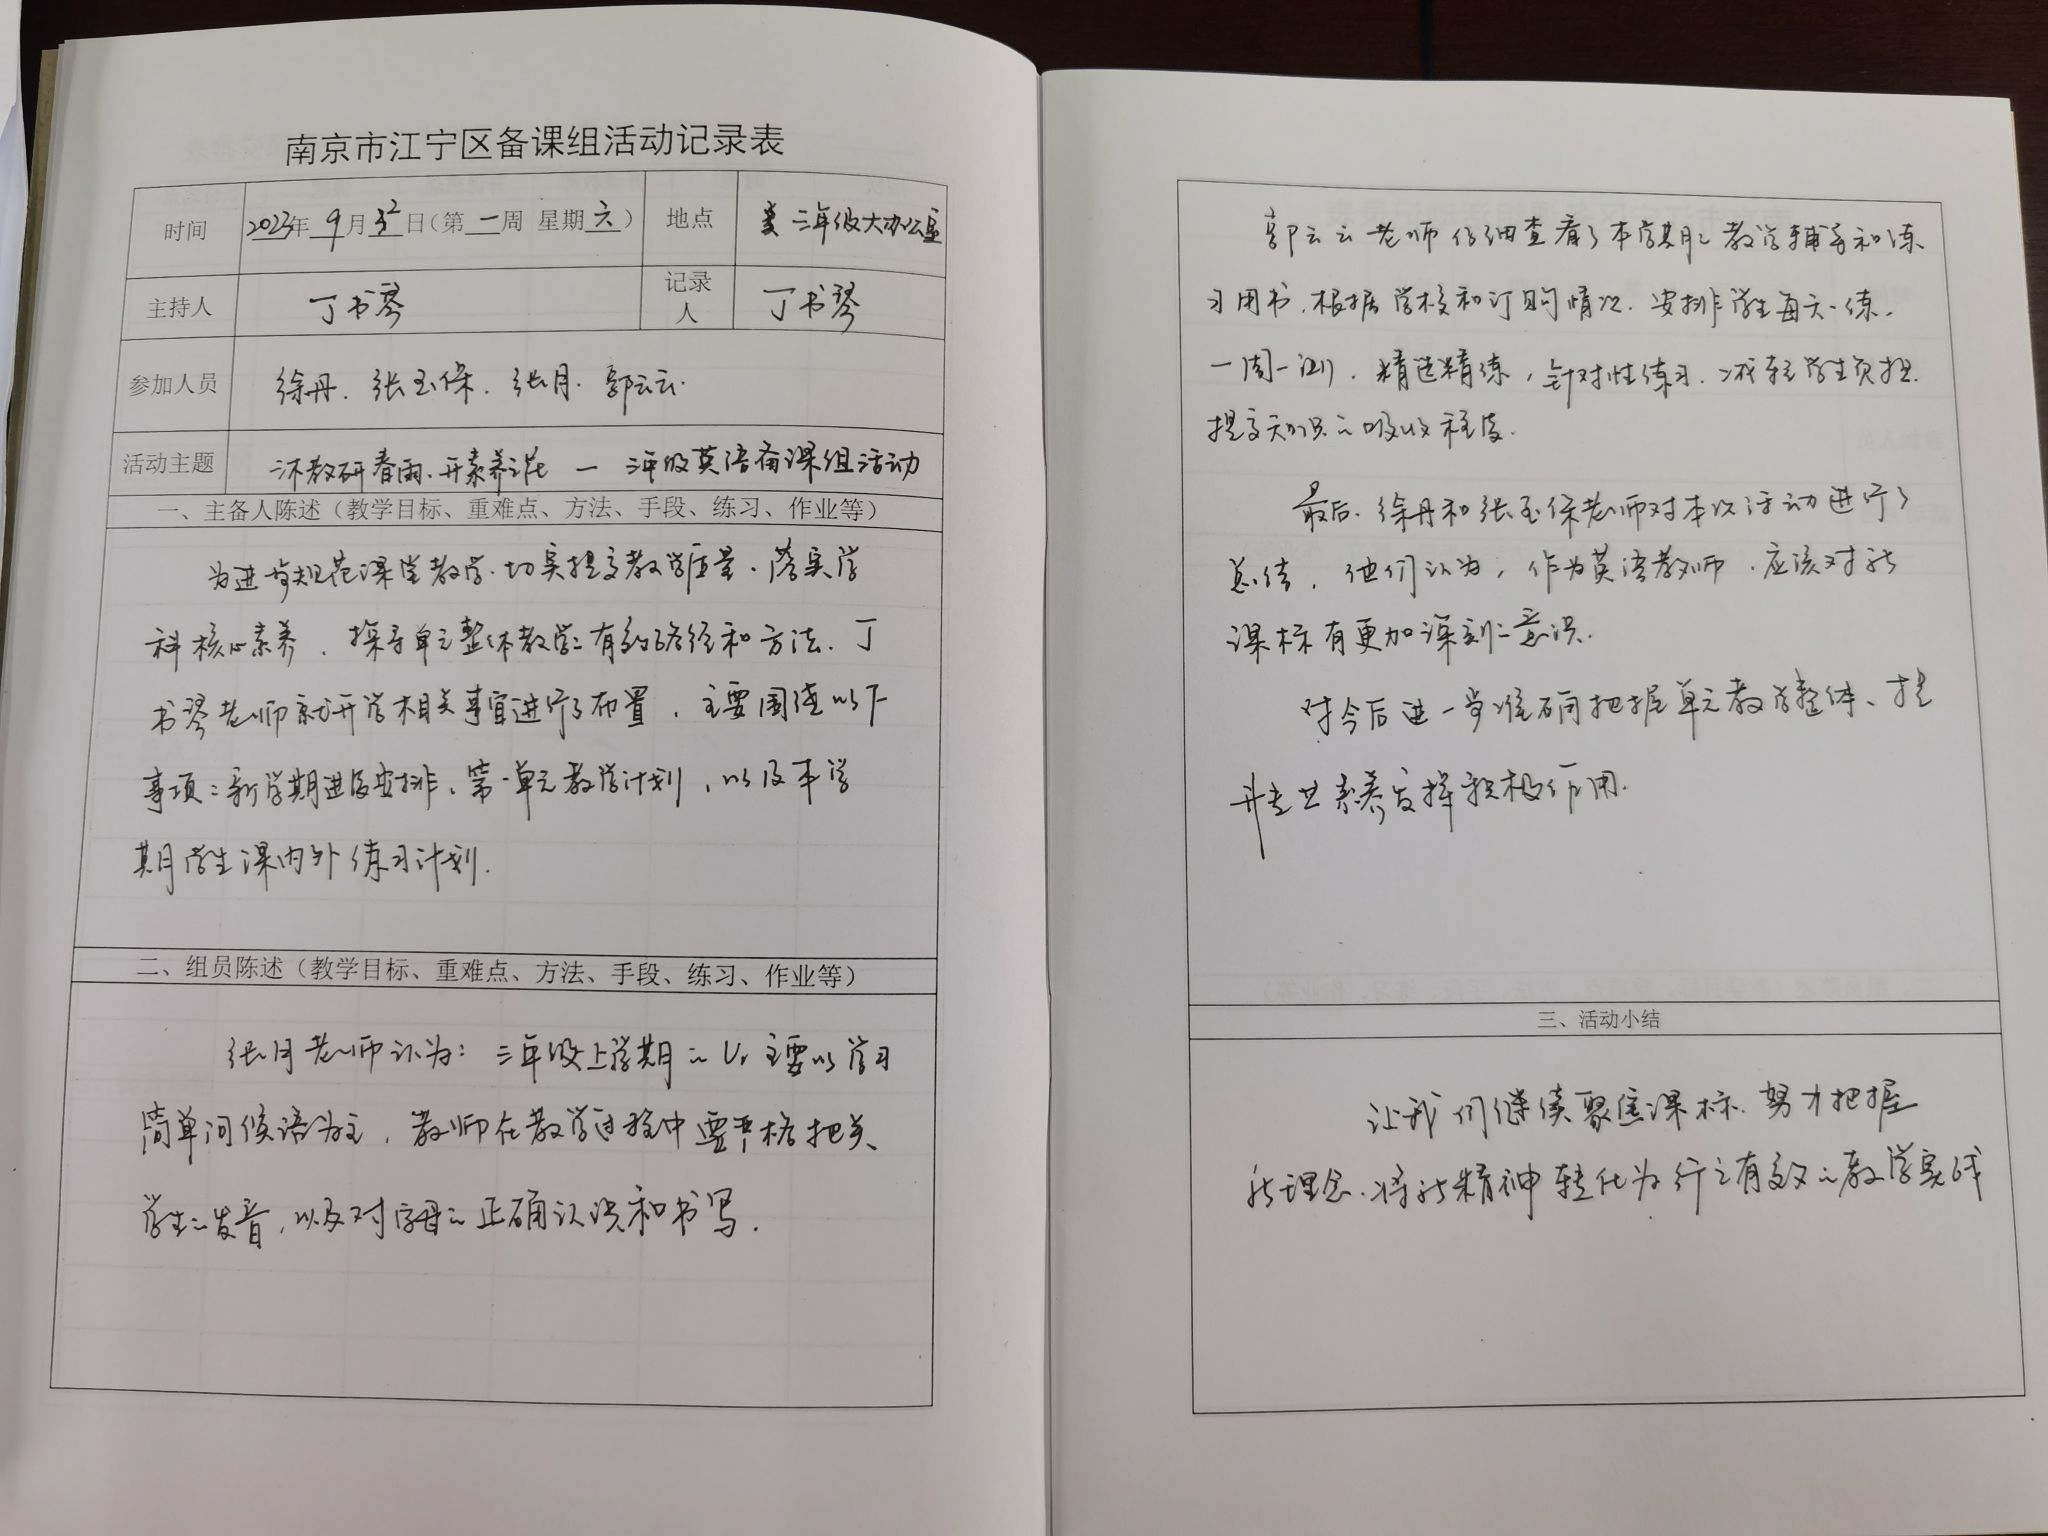 南京市江宁区备课组活动记录表
时间 2023年 9月 2日(第一周 星期六) 地点 三年级大办公室
主持人 丁书琴 记录人 丁书琴
参加人员 徐丹、张玉保、张月、郭云云
活动主题 沐教研春雨、开素养之花 — 三年级英语备课组活动
一、主备人陈述(教学目标、重难点、方法、手段、练习、作业等)
为进一步规范课堂教学、切实提高教学质量、落实学
科核心素养、探寻单元整体教学的有效路径和方法、丁
书琴老师就开学相关事宜进行了布置,主要围绕以下
事项:新学期进度安排、第一单元教学计划,以及本学
期学生课内外练习计划.
二、组员陈述(教学目标、重难点、方法、手段、练习、作业等)
张月老师认为:三年级上学期的U1主要以学习
简单问候语为主,教师在教学过程中要严格把关
学生的发音,以及对字母的正确认识和书写.
郭云云老师仔细查看了本学期的教学辅导和练
习用书.根据学校和订购情况.安排学生每天一练.
一周一测.精选精练,针对性练习.减轻学生负担.
提高知识的吸收程度.
最后.徐丹和张玉保老师对本次活动进行了
总结,他们认为,作为英语教师.应该对新
课标有更加深刻的意识.
对今后进一步准确把握单元教学整体、提
升专业素养发挥积极作用.
三、活动小结
让我们继续聚焦课标.努力把握
新理念.将新精神转化为行之有效的教学实践